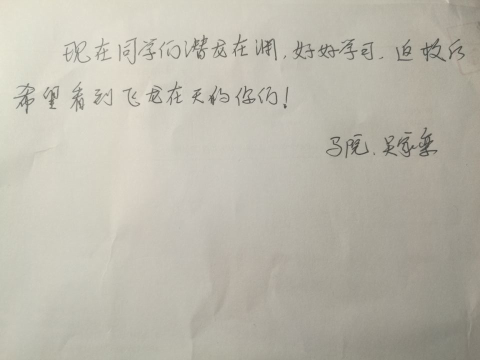 现在同学们潜龙在渊，好好学习，
希望看到飞龙在天的你们！
马院、吴家